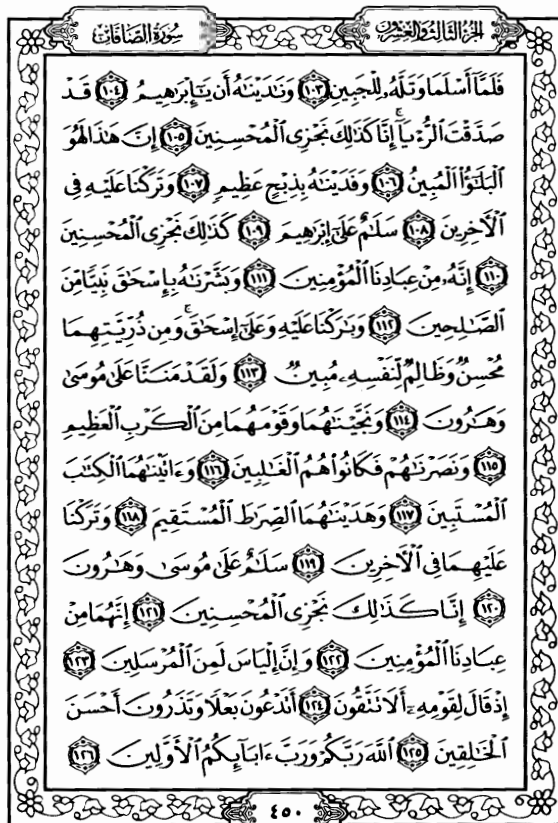 الجزء الثالث والعشرون سورة الصافات
فَلَمَّا أَسْلَمَا وَتَلَّهُۥ لِلْجَبِينِ ١٠٣ وَنَٰدَيْنَٰهُ أَن يَٰٓإِبْرَٰهِيمُ ١٠٤ قَدْ
صَدَّقْتَ الرُّءْيَآ ۚ إِنَّا كَذَٰلِكَ نَجْزِى الْمُحْسِنِينَ ١٠٥ إِنَّ هَٰذَا لَهُوَ
الْبَلَٰٓؤُا۟ الْمُبِينُ ١٠٦ وَفَدَيْنَٰهُ بِذِبْحٍ عَظِيمٍ ١٠٧ وَتَرَكْنَا عَلَيْهِ فِى
الْءَاخِرِينَ ١٠٨ سَلَٰمٌ عَلَىٰٓ إِبْرَٰهِيمَ ١٠٩ كَذَٰلِكَ نَجْزِى الْمُحْسِنِينَ
١١٠ إِنَّهُۥ مِنْ عِبَادِنَا الْمُؤْمِنِينَ ١١١ وَبَشَّرْنَٰهُ بِإِسْحَٰقَ نَبِيًّا مِّنَ
الصَّٰلِحِينَ ١١٢ وَبَٰرَكْنَا عَلَيْهِ وَعَلَىٰٓ إِسْحَٰقَ ۚ وَمِن ذُرِّيَّتِهِمَا
مُحْسِنٌ وَظَالِمٌ لِّنَفْسِهِۦ مُبِينٌ ١١٣ وَلَقَدْ مَنَنَّا عَلَىٰ مُوسَىٰ
وَهَٰرُونَ ١١٤ وَنَجَّيْنَٰهُمَا وَقَوْمَهُمَا مِنَ الْكَرْبِ الْعَظِيمِ
١١٥ وَنَصَرْنَٰهُمْ فَكَانُوا۟ هُمُ الْغَٰلِبِينَ ١١٦ وَءَاتَيْنَٰهُمَا الْكِتَٰبَ
الْمُسْتَبِينَ ١١٧ وَهَدَيْنَٰهُمَا الصِّرَٰطَ الْمُسْتَقِيمَ ١١٨ وَتَرَكْنَا
عَلَيْهِمَا فِى الْءَاخِرِينَ ١١٩ سَلَٰمٌ عَلَىٰ مُوسَىٰ وَهَٰرُونَ
١٢٠ إِنَّا كَذَٰلِكَ نَجْزِى الْمُحْسِنِينَ ١٢١ إِنَّهُمَا مِنْ
عِبَادِنَا الْمُؤْمِنِينَ ١٢٢ وَإِنَّ إِلْيَاسَ لَمِنَ الْمُرْسَلِينَ ١٢٣
إِذْ قَالَ لِقَوْمِهِۦٓ أَلَا تَتَّقُونَ ١٢٤ أَتَدْعُونَ بَعْلًا وَتَذَرُونَ أَحْسَنَ
الْخَٰلِقِينَ ١٢٥ اللَّهَ رَبَّكُمْ وَرَبَّ ءَابَآئِكُمُ الْأَوَّلِينَ ١٢٦
٤٥٠